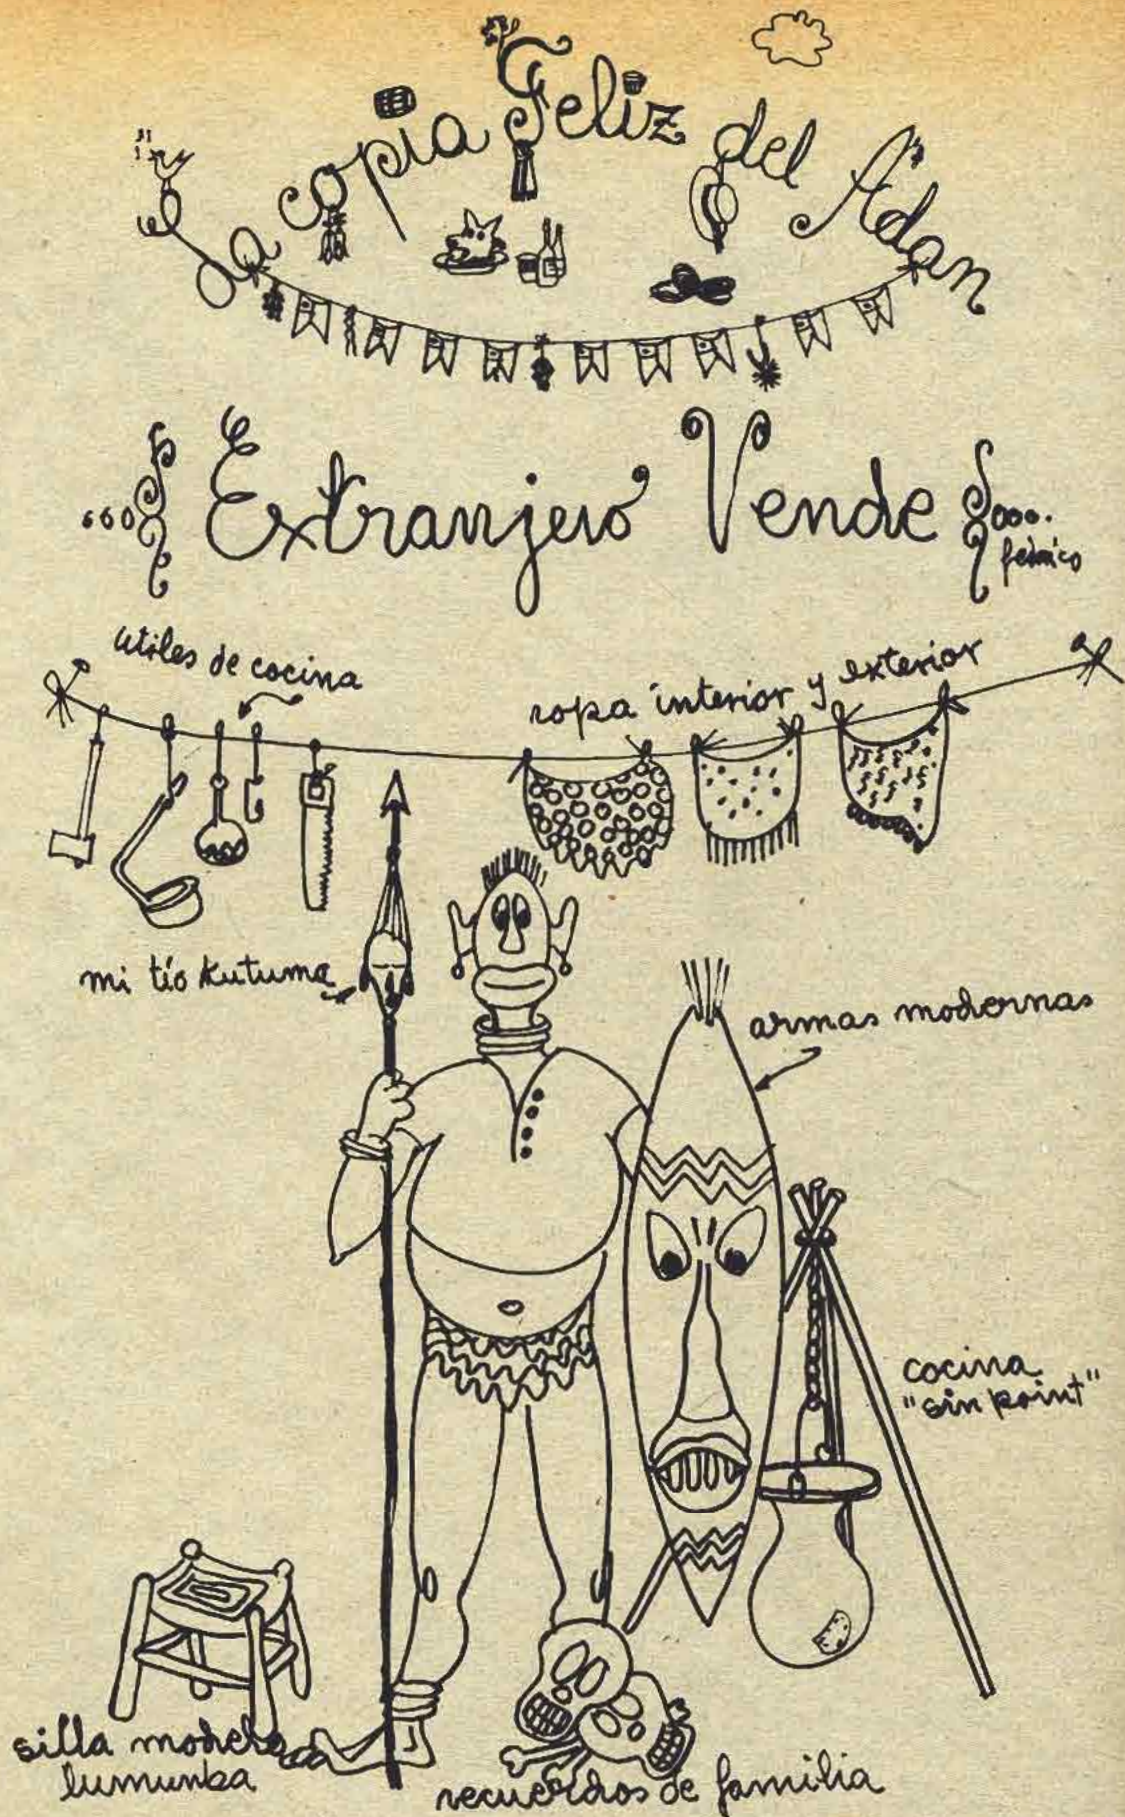 La copia Feliz del Adán
Extranjero Vende
fedrico
útiles de cocina
ropa interior y exterior
mi tío kutuma
armas modernas
cocina
"sin point"
silla modelo
lumumba
recuerdos de familia